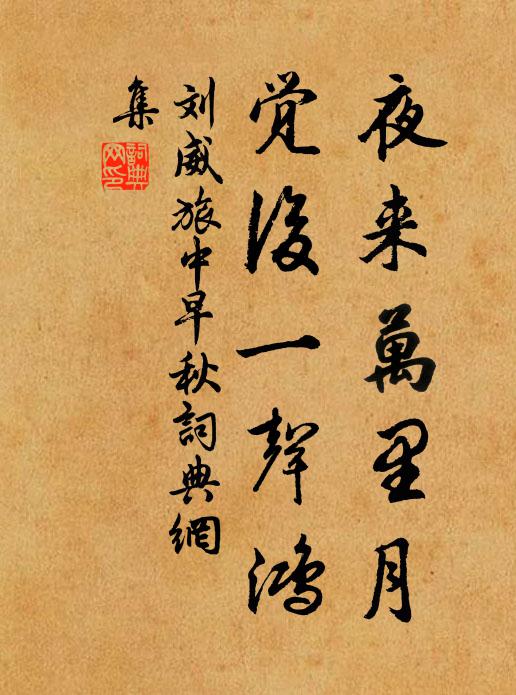 夜来萬里月
覚後一聲鴻
刘威旅中早秋詞典網
集
詞典
网印